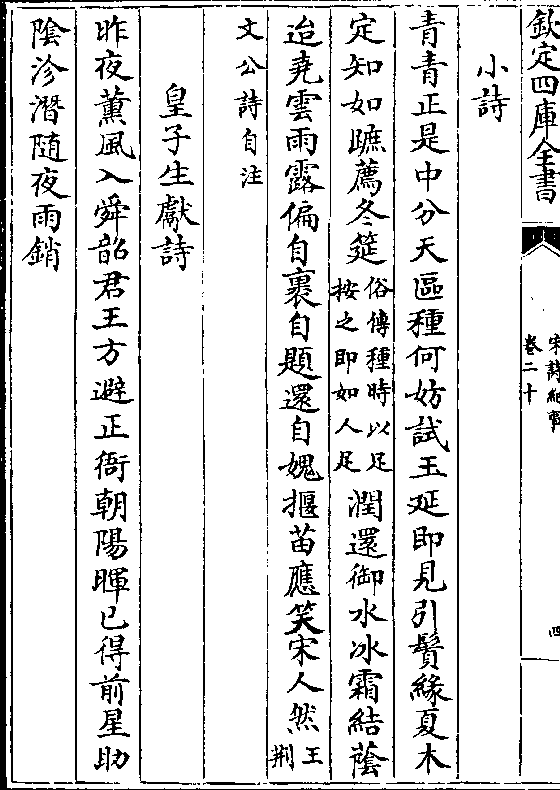 欽定四庫全書
宋詩紀事
卷二十
四
小詩
青青正是中分天區種何妨試玉延即見引鬚緣夏木
定知如蹠薦冬筵
俗傳種時以足
按之即如人足
潤還御水冰霜結蔭
近堯雲雨露偏自裹自題還自媿揠苗應笑宋人然
王
荆
文公詩自注
皇子生獻詩
昨夜薰風入舜韶君王方避正衙朝陽暉已得前星助
陰沴潛隨夜雨銷